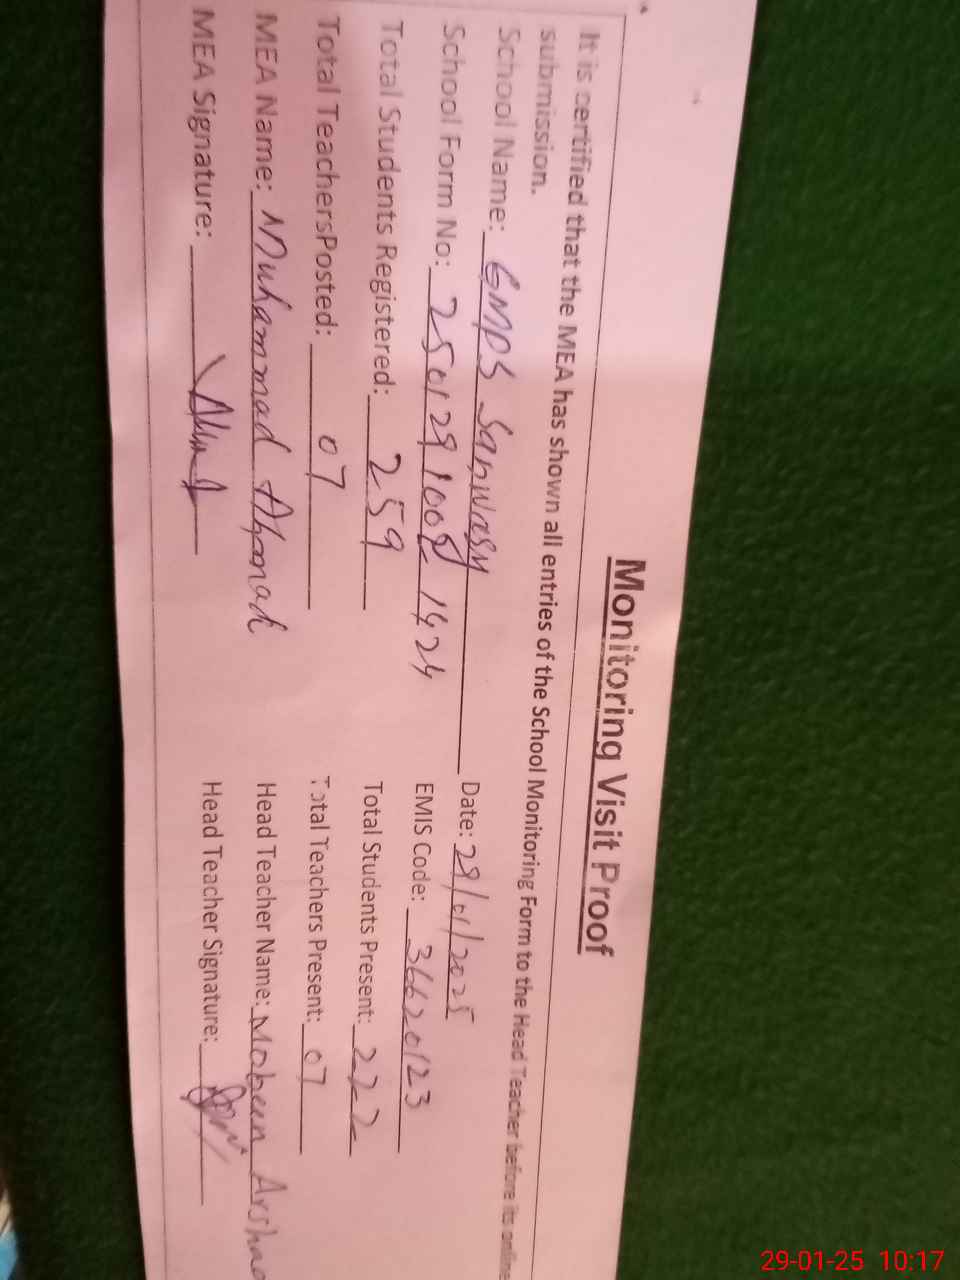 Monitoring Visit Proof
It is certified that the MEA has shown all entries of the School Monitoring Form to the Head Teacher before its online
submission.
School Name: GMPS Sanwasy Date: 29/01/2025
School Form No: 250129 1008 1424 EMIS Code: 36620123
Total Students Registered: 259 Total Students Present: 222
Total TeachersPosted: 07 Total Teachers Present: 07
MEA Name: Muhammad Ahmad Head Teacher Name: Mobeen Arshad
MEA Signature: Head Teacher Signature:
29-01-25 10:17